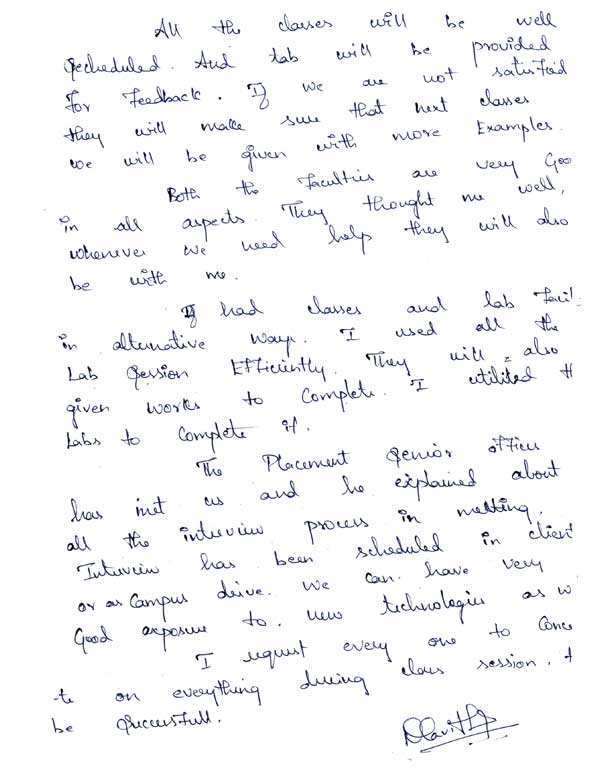 All the classes will be well
Scheduled. And tab will be provided
for Feedback. If we are not satisfaid
they will make sure that next classes
we will be given with more Examples.
Both the Faculties are very Goo
in all aspects. They thought me well,
whenever we need help they will also
be with me.
I had classes and lab Facil
in alternative ways. I used all the
Lab Session Efficiently. They will also
given works to Complete. I utilited th
Labs to Complete it.
The Placement Senior officer
has met us and he explained about
all the interview process in meeting.
Interview has been scheduled in client
or as Campus drive. We can have very
Good exposure to new technologies as w
I request every one to Conce
-te on everything during class session, t
be Successfull.